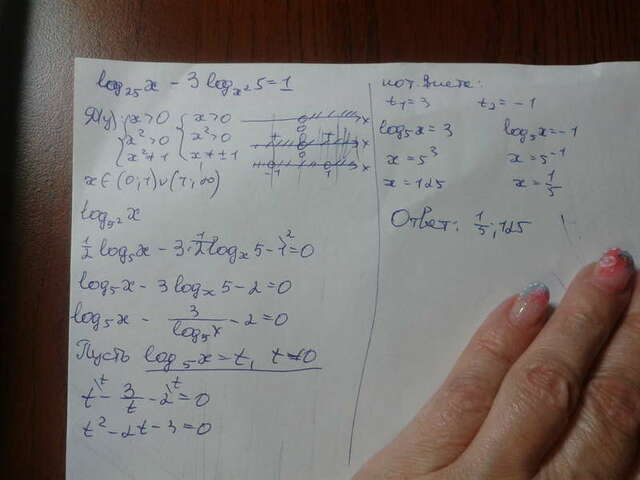 log₂₅x − 3 log_{x²}5 = 1
ОДЗ: { x > 0 { x > 0
x² > 0 x² > 0
x² ≠ 1 x ≠ ± 1
x ∈ (0; 1) ∪ (1; ∞)
log_{5²}x
½ log₅x − 3 · ½ log_x 5 − 1 = 0
log₅x − 3 log_x 5 − 2 = 0
log₅x − 3/log₅x − 2 = 0
Пусть log₅x = t, t ≠ 0
t − 3/t − 2 = 0
t² − 2t − 3 = 0
по т. Виета:
t₁ = 3 t₂ = −1
log₅x = 3 log₅x = −1
x = 5³ x = 5⁻¹
x = 125 x = 1/5
Ответ: 1/5; 125